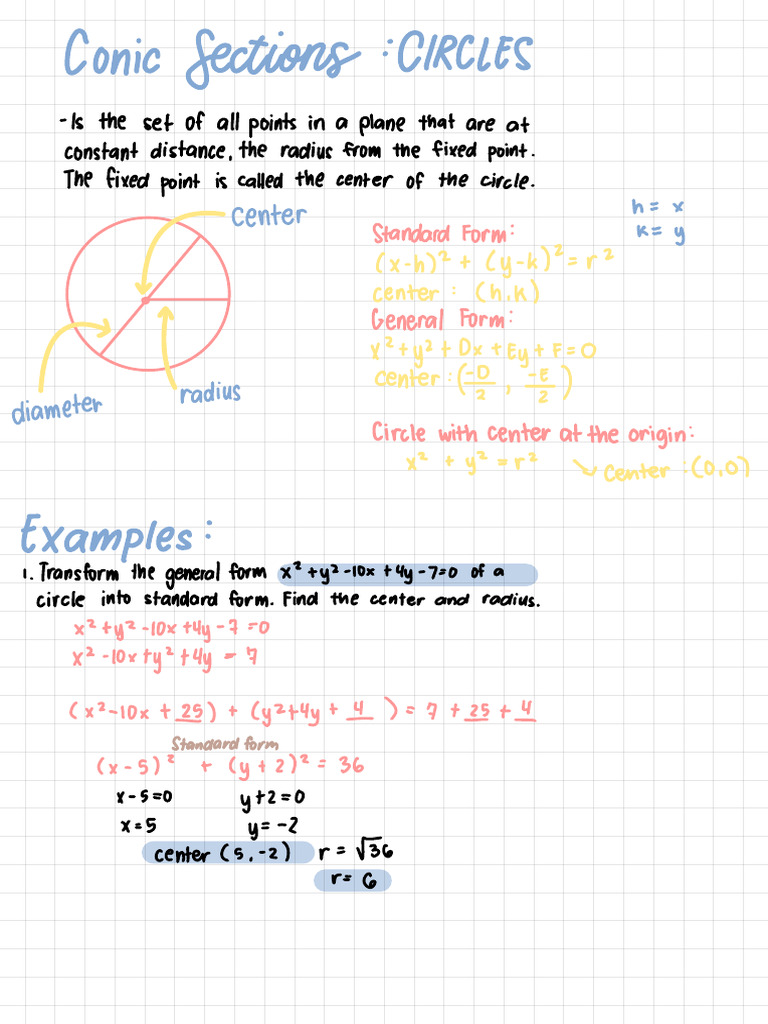 Conic Sections : CIRCLES
- Is the set of all points in a plane that are at
constant distance, the radius from the fixed point.
The fixed point is called the center of the circle.
center
h = x
k = y
Standard Form:
(x-h)² + (y-k)² = r²
center : (h,k)
General Form:
x² + y² + Dx + Ey + F = 0
center : (-D/2 , -E/2)
diameter
radius
Circle with center at the origin:
x² + y² = r² ↘ center : (0,0)
Examples :
1. Transform the general form x² + y² -10x + 4y -7=0 of a
circle into standard form. Find the center and radius.
x² + y² -10x + 4y - 7 = 0
x² -10x + y² + 4y = 7
(x² -10x + 25) + (y² + 4y + 4) = 7 + 25 + 4
Standard form
(x - 5)² + (y + 2)² = 36
x - 5 = 0 y + 2 = 0
x = 5 y = -2
center (5, -2) r = √36
r = 6